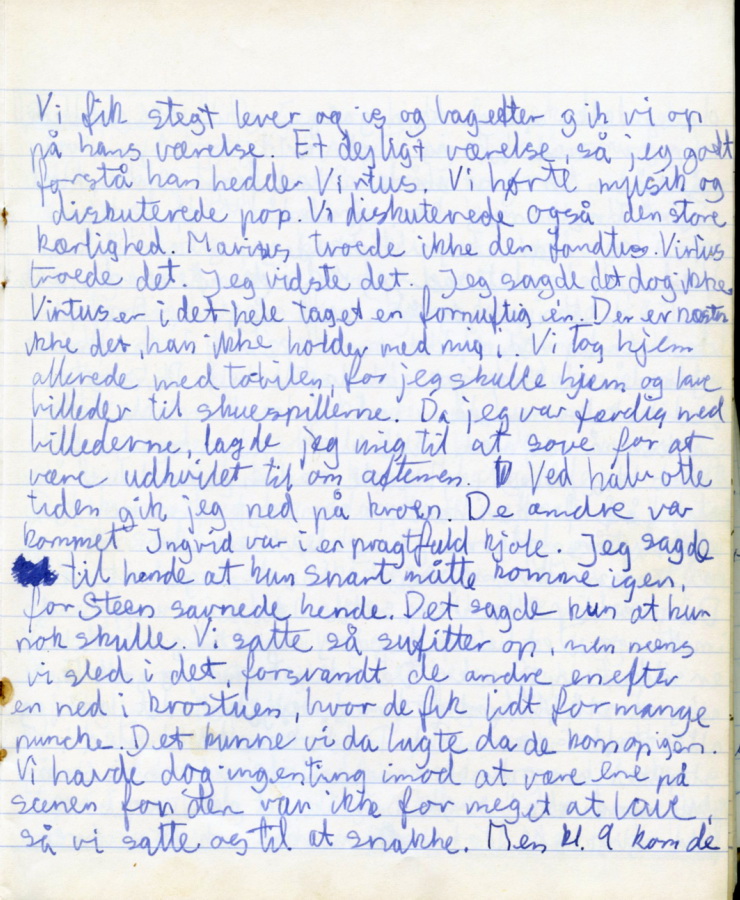 Vi fik stegt lever og is og bagefter gik vi op
på hans værelse. Et dejligt værelse, så jeg godt
forstå han hedder Virtus. Vi hørte mysik og
diskuterede pop. Vi diskuterede også den store
kærlighed. Marius troede ikke den fandtes. Virtus
troede det. Jeg vidste det. Jeg sagde det dog ikke
Virtus er i det hele taget en fornuftig én. Der er næsten
ikke det, han ikke holder med mig i. Vi tog hjem
allerede med toilen, for jeg skulle hjem og lave
billeder til skuespillerne. Da jeg var færdig med
billederne, lagde jeg mig til at sove for at
være udhvilet til om aftenen. Ved halv otte
tiden gik jeg ned på kroen. De andre var
kommet Ingrid var i en pragtfuld kjole. Jeg sagde
til hende at hun snart måtte komme igen,
for Steen savnede hende. Det sagde hun at hun
nok skulle. Vi satte så sufitter op, men mens
vi sled i det, forsvandt de andre en efter
en ned i krostuen, hvor de fik lidt for mange
punche. Det kunne vi da lugte da de kom op igen.
Vi havde dog ingenting imod at være ene på
scenen for der var ikke for meget at lave,
så vi satte os til at snakke. Men kl. 9 kom de